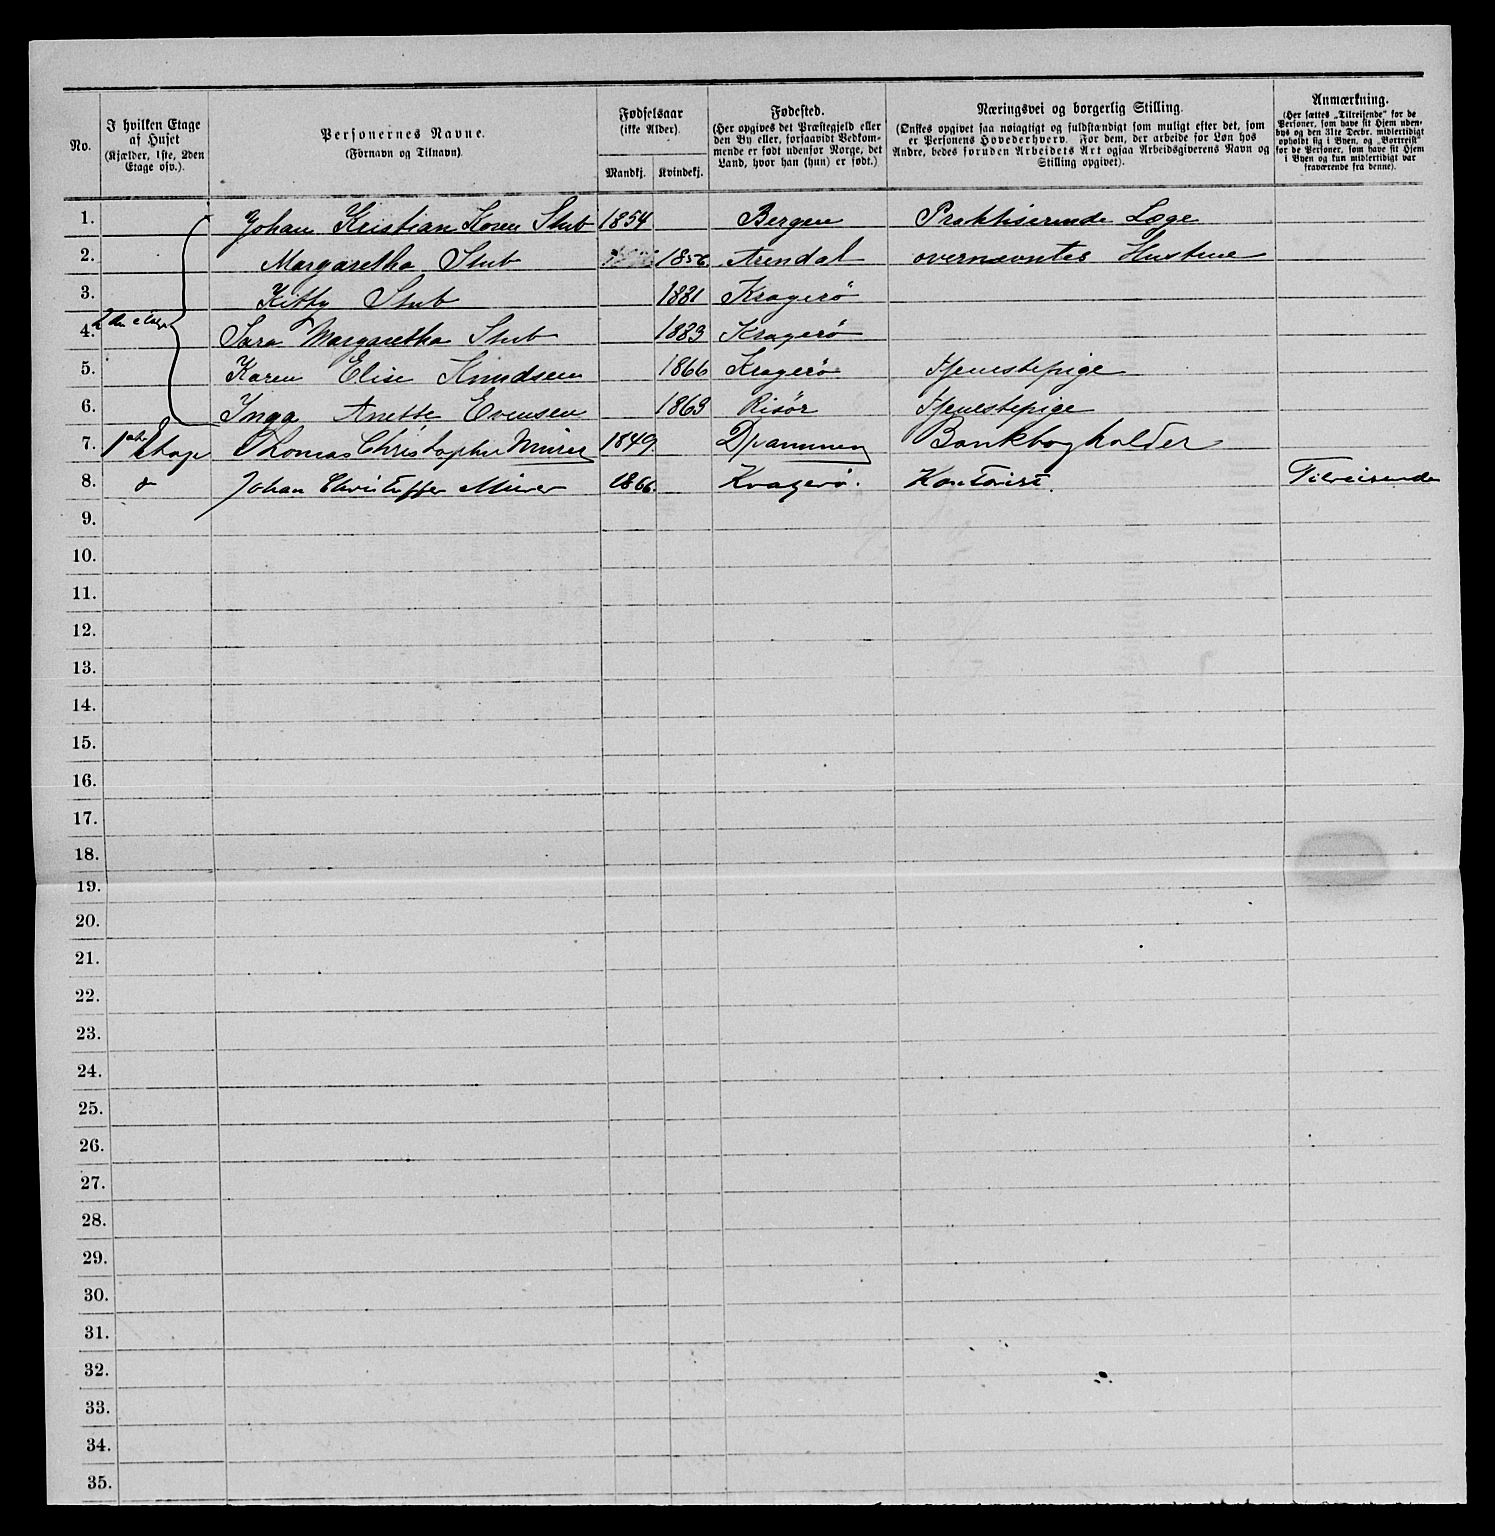 No.
I hvilken Etage
af Huset
(Kjælder, 1ste, 2den
Etage osv.).
Personernes Navne.
(Fornavn og Tilnavn).
Fødselsaar
(ikke Alder).
Mandkj. Kvindekj.
Fødested.
(Her opgives det Præstegjeld eller
den By eller, forsaavidt Bedkom-
mende er født udenfor Norge, det
Land, hvor han (hun) er født.)
Næringsvei og borgerlig Stilling.
(Ønskes opgivet saa nøiagtigt og fuldstændigt som muligt efter det, som
er Personens Hovederhverv. For dem, der arbeide for Løn hos
Andre, bedes foruden Arbeidets Art ogsaa Arbeidsgiverens Navn og
Stilling opgivet).
Anmærkning.
(Her sættes „Tilreisende“ for de
Personer, som have sit Hjem uden-
bys og den 31te Decbr. midlertidigt
opholdt sig i Byen, og „Bortreist“
for de Personer, som have sit Hjem
i Byen og kun midlertidigt var
fraværende fra denne).
1. Johan Kristian Koren Stub 1854 Bergen Praktiserende Læge
2. Margaretha Stub 1856 Arendal ovennævntes Hustrue
3. Kitty Stub 1881 Kragerö
2den etage
4. Sara Margaretha Stub 1883 Kragerö
5. Karen Elise Knudsen 1866 Kragerö Tjenestepige
6. Inga Anette Evensen 1863 Risör Tjenestepige
7. 1ste Etage Thomas Christopher Mürer 1849 Drammen Bankbogholder
8. Johan Christoffer Mürer 1866. Kragerø. Kontorist. Tilreisende
9.
10.
11.
12.
13.
14.
15.
16.
17.
18.
19.
20.
21.
22.
23.
24.
25.
26.
27.
28.
29.
30.
31.
32.
33.
34.
35.